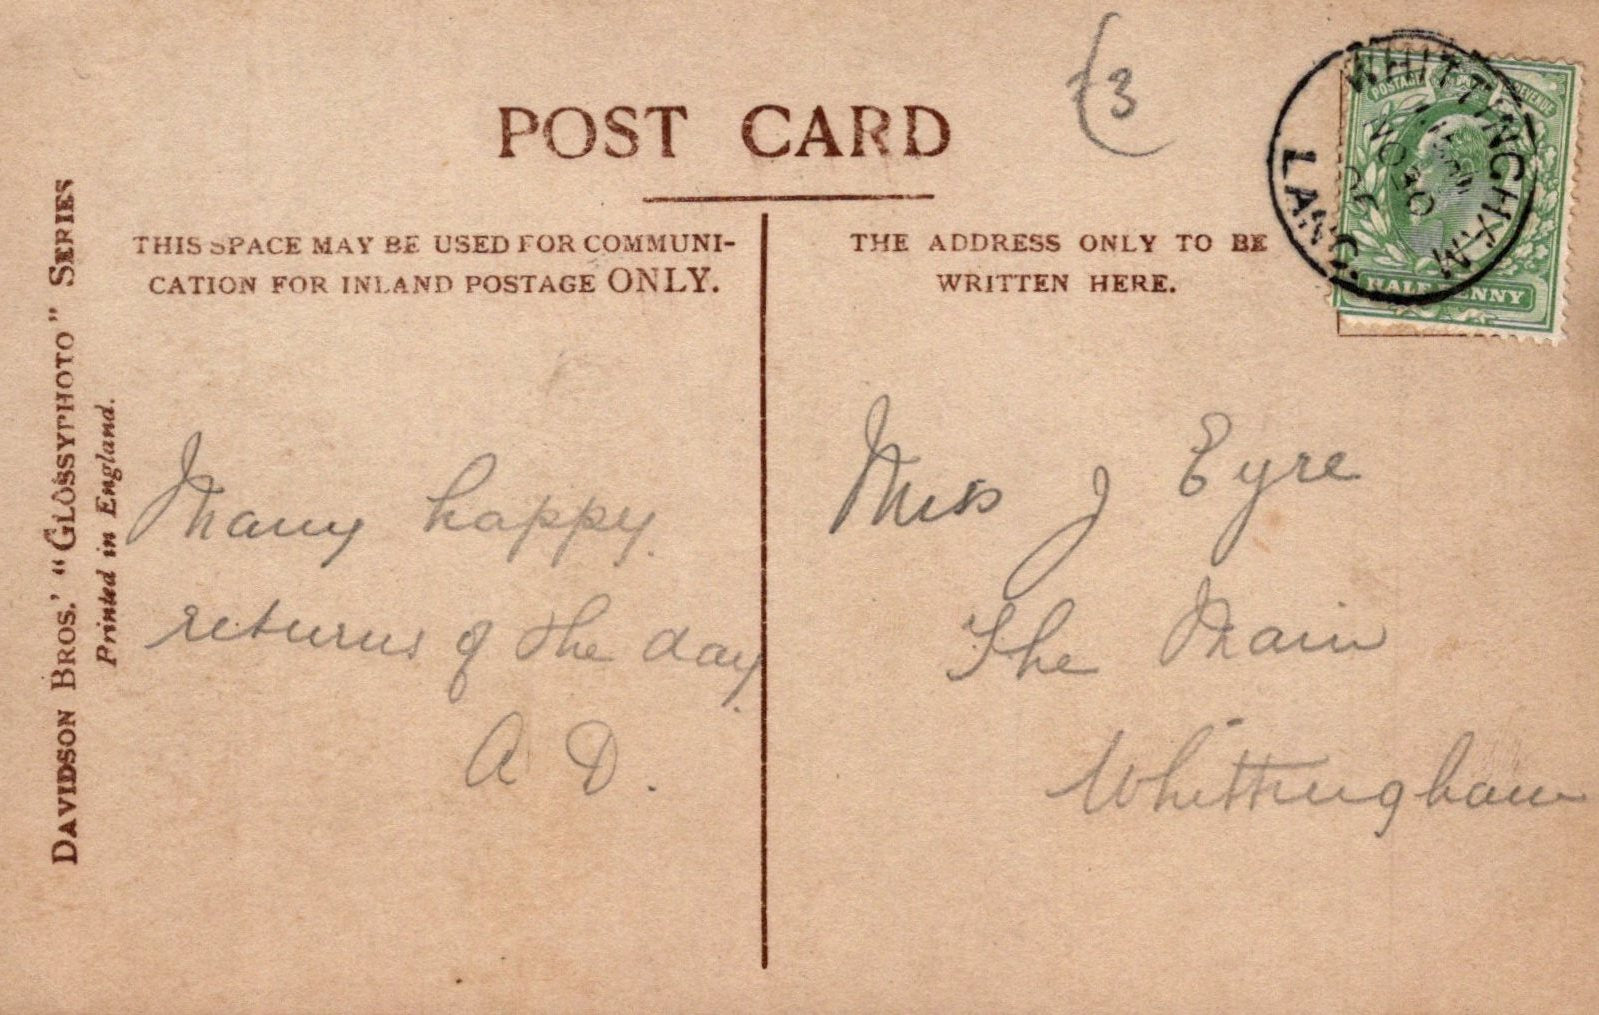 POST CARD
(3
THIS SPACE MAY BE USED FOR COMMUNI-
CATION FOR INLAND POSTAGE ONLY.
THE ADDRESS ONLY TO BE
WRITTEN HERE.
DAVIDSON BROS.' "GLOSSYPHOTO" SERIES
Printed in England.
WHITTINGHAM
LANC.
POSTAGE REVENUE
HALFPENNY
Many happy
returns of the day
A D.
Miss J Eyre
The Main
Whittingham